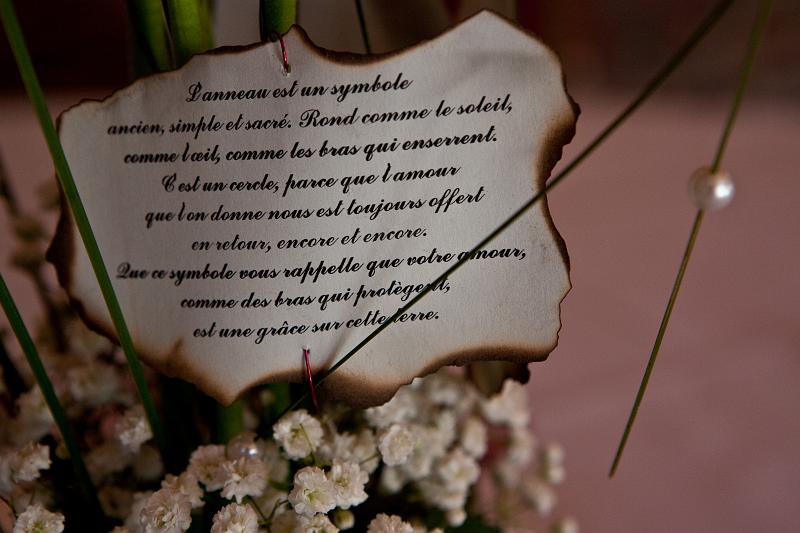 L'anneau est un symbole
ancien, simple et sacré. Rond comme le soleil,
comme l'œil, comme les bras qui enserrent.
C'est un cercle, parce que l'amour
que l'on donne nous est toujours offert
en retour, encore et encore.
Que ce symbole vous rappelle que votre amour,
comme des bras qui protègent,
est une grâce sur cette terre.